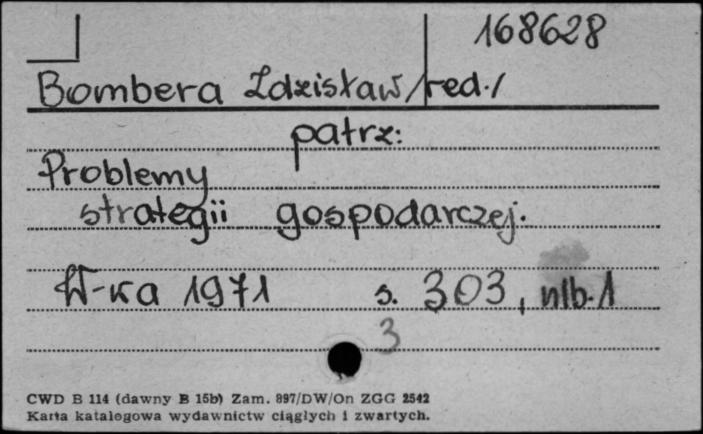 168628
Bombera Zdzisław /red./
patrz:
Problemy
strategii gospodarczej.
W-wa 1971 s. 303, nlb. 1
3
CWD B 114 (dawny B 15b) Zam. 897/DW/On ZGG 2542
Karta katalogowa wydawnictw ciągłych i zwartych.